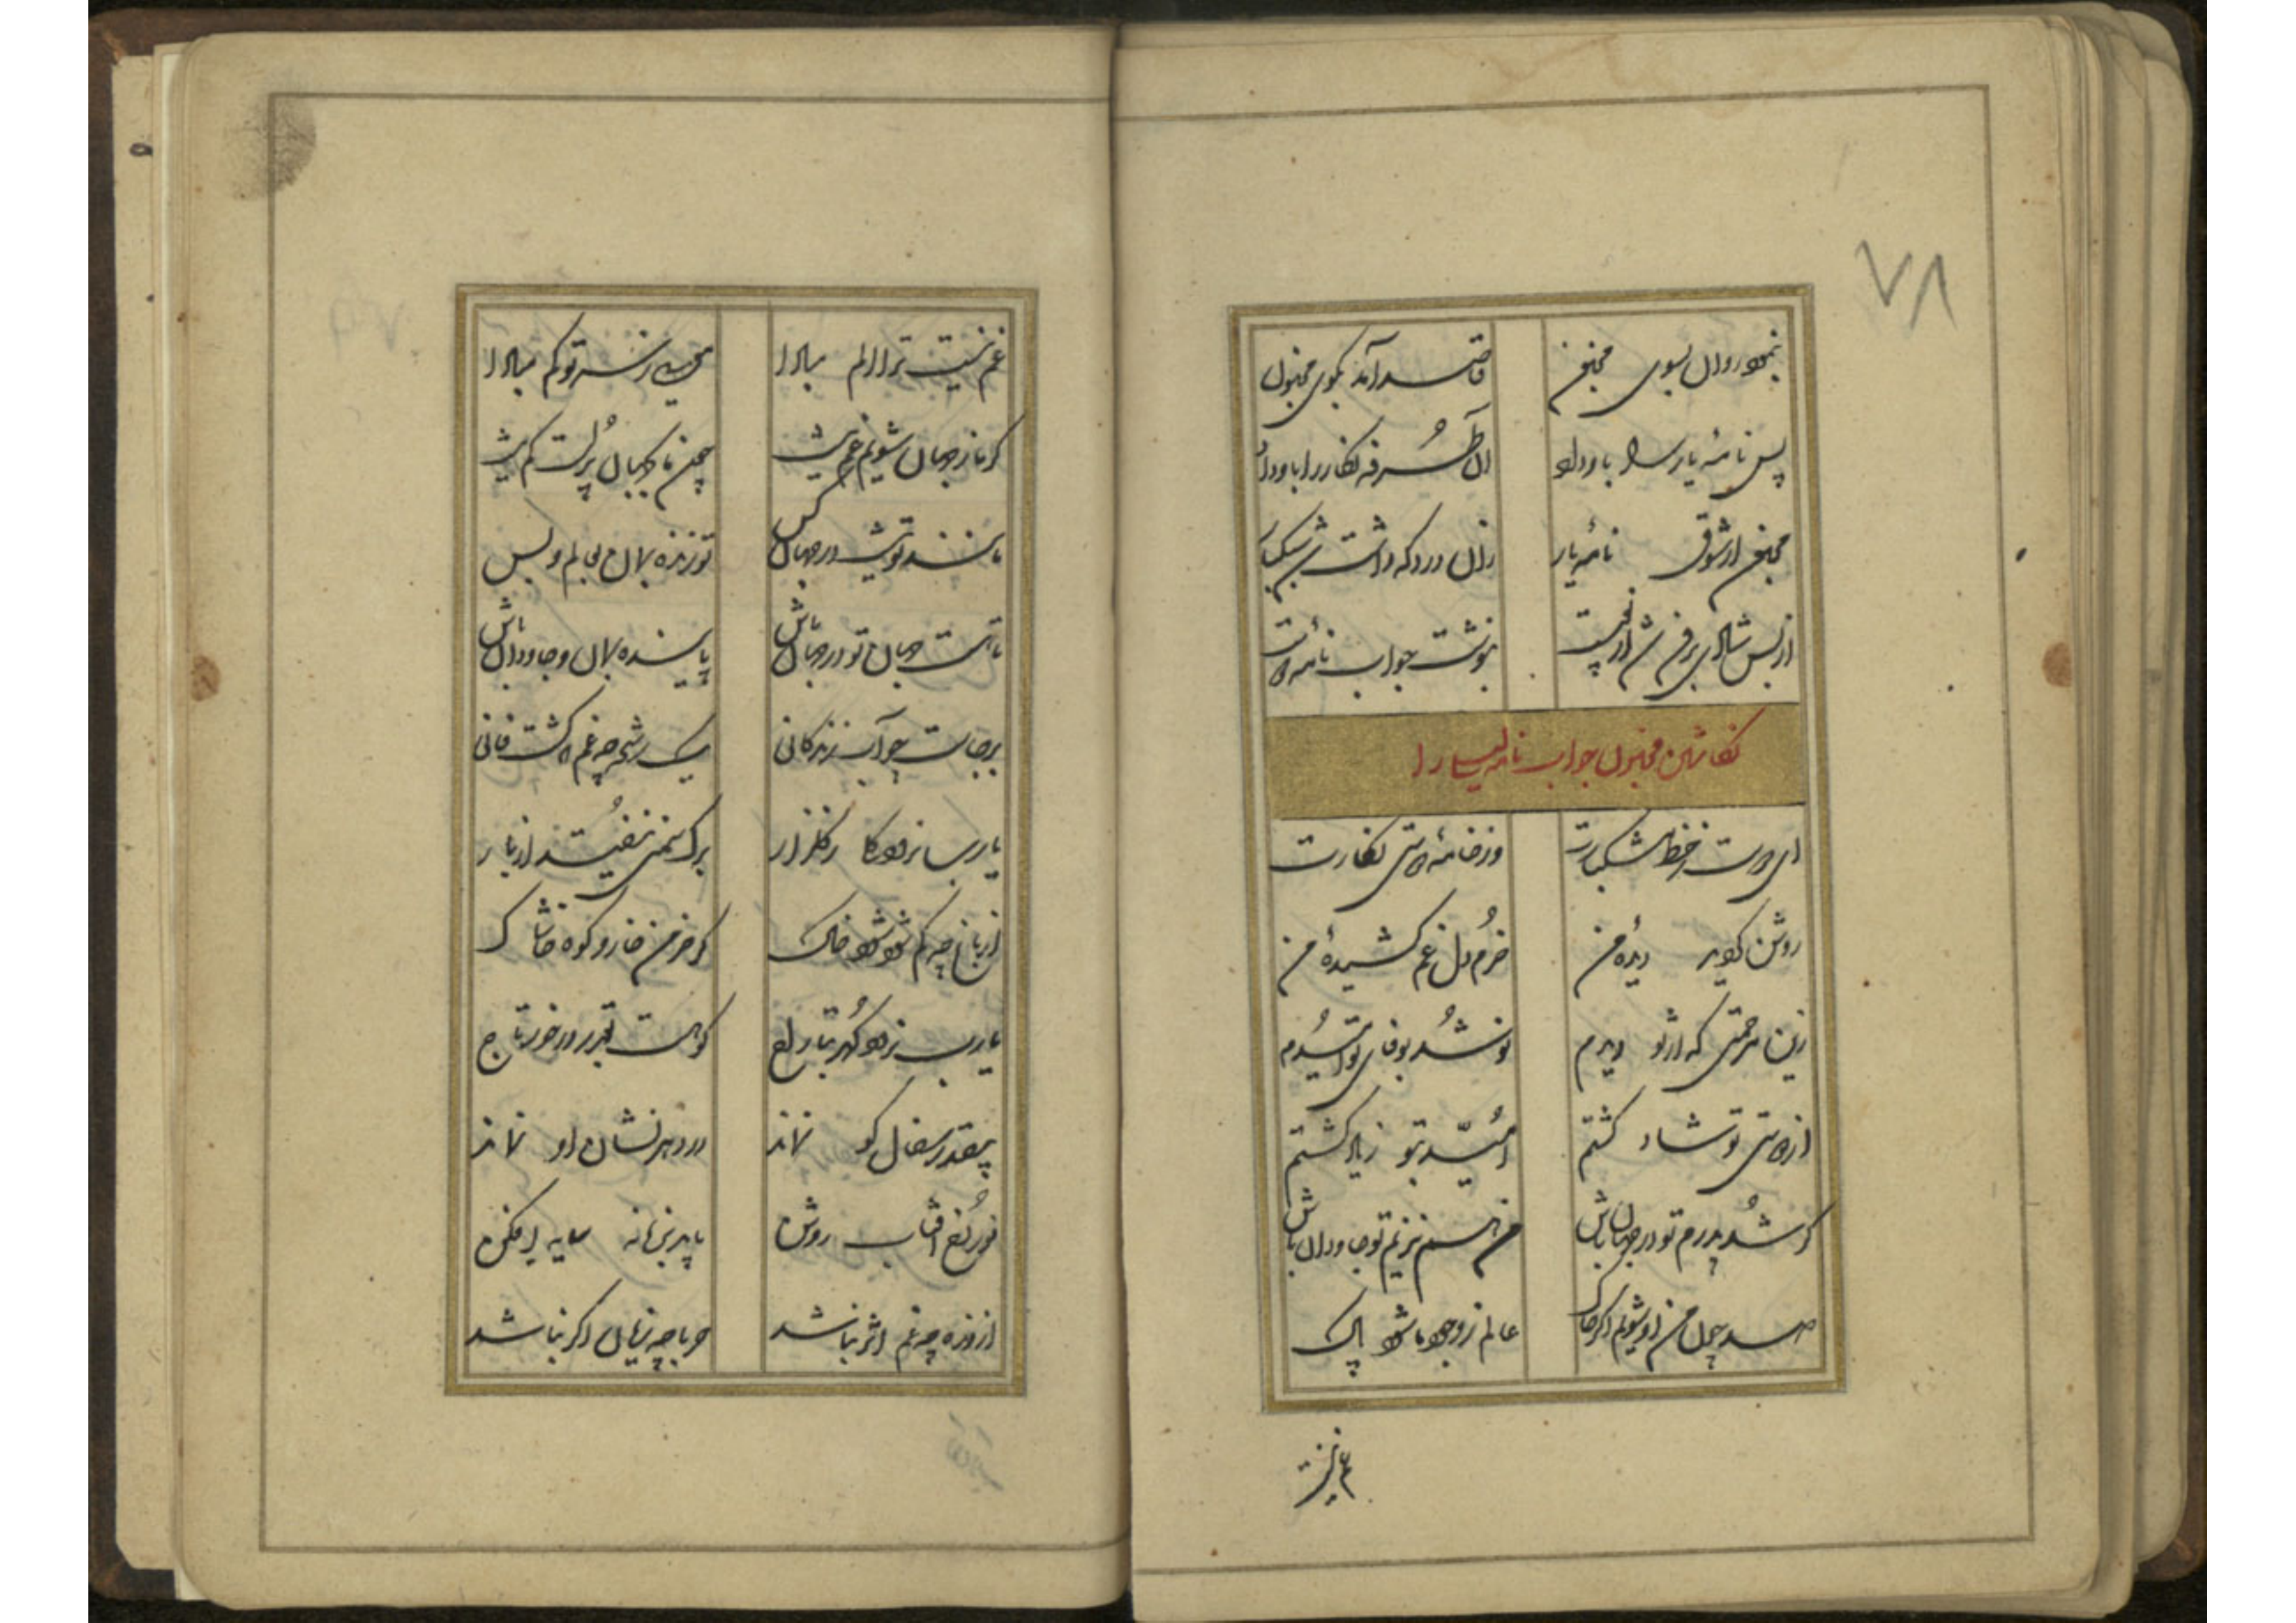 ۷۸
بنمود روان بسوی مجنون قاصد آمد بکوی مجنون
پس نامهٔ یار را باو داد آن طُرفه نکار را باو داد
مجنون از شوق نامهٔ یار زان درد که داشت
از بس شادی برفت از دست بنوشت جواب نامه
نکاشتن مجنون جواب نامه لیلی را
ای دوست ز خط مشکبارت وز خامهٔ دوستی نکارت
روشن کردید دیدهٔ من خرم دل غم کشیدهٔ من
زین مرحمتی که از تو دیدم نو شُد بوفای تو اُمیدم
از دوستی تو شاد کشتم اُمّید بتو زیاد کشتم
کر شُد پدرم تو در جهان باش من هم نزیم تو جاودان باش
صد چون من او شویم اکر خاک عالم ز وجود ما شود پاک
غم نیست
غم نیست ترا الم مبادا یک مو ز سر تو کم مبادا
کر ما ز جهان شویم غم نیست چون ما بجهان پُرست کم نیست
مانند تو نیست در جهان کس تو زنده بمان بعالم و بس
تا هست جهان تو در جهان باش پاینده بمان و جاودان باش
برجاست چو آب زندکانی یک رشحه چه غم کشت فانی
یا رب نرود کل ز کلزار برک سمنی نیفتد از بار
از باغ چه کم شود شود خاک کر خرمن خار و کوه خاشاک
یا رب نرود کُهر بتاراج کو هست بقدر در خور تاج
بیقدر سفال کو نماند در دهر نشان او نماند
نور رُخ آفتاب روشن پاینده سایه افکن
از ذره چه غم اثر نباشد حربا چه زیان اکر نباشد